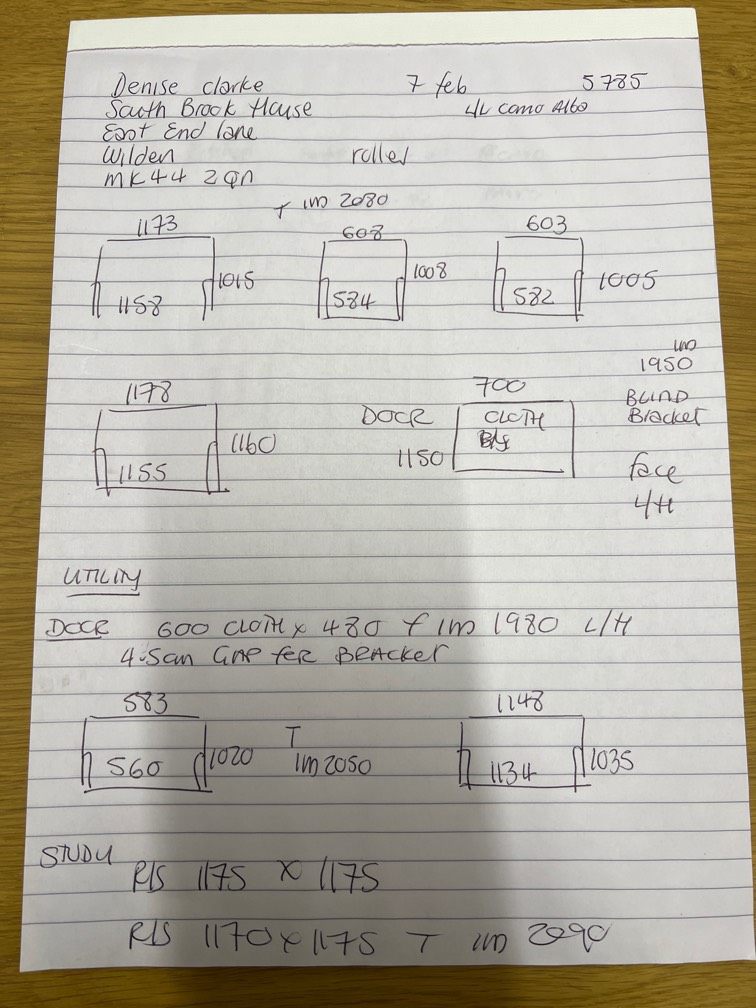 Denise Clarke 7 feb 5785
South Brook House 4L Como Albo
East End lane
Wilden roller
MK44 2QN
T IM 2080
1173 608 603
1015 1008 1005
1158 584 582
IM
1950
1178 700 BLIND
DOOR CLOTH Bracket
1160 1150
1155 face
L/H
UTILITY
DOOR 600 CLOTH x 480 f IM 1980 L/H
4.5cm GAP FER BRACKET
583 1148
560 1020 T 1134 1035
IM 2050
STUDY
R/S 1175 x 1175
R/S 1170 x 1175 T IM 2090